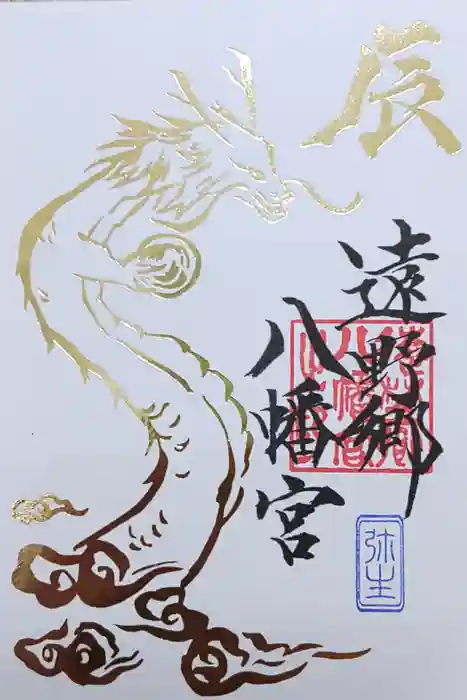 辰
遠野郷
八幡宮
弥生